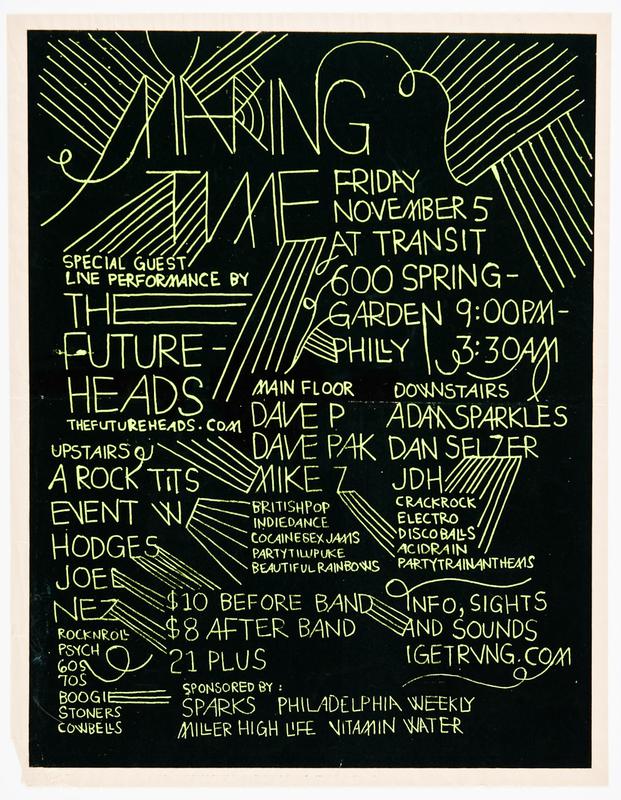 MAKING
TIME
FRIDAY
NOVEMBER 5
AT TRANSIT
600 SPRING-
GARDEN 9:00PM-
PHILLY 3:30AM
SPECIAL GUEST
LIVE PERFORMANCE BY
THE
FUTURE-
HEADS
THEFUTUREHEADS.COM
UPSTAIRS
A ROCK TITS
EVENT W
HODGES
JOEL
NEZ
ROCKNROLL
PSYCH
60S
70S
BOOGIE
STONERS
COWBELLS
MAIN FLOOR
DAVE P
DAVE PAK
MIKE Z
BRITISHPOP
INDIEDANCE
COCAINESEXJAMS
PARTYTILUPUKE
BEAUTIFULRAINBOWS
DOWNSTAIRS
ADAMSPARKLES
DAN SELZER
JDH
CRACKROCK
ELECTRO
DISCOBALLS
ACIDRAIN
PARTYTRAINANTHEMS
$10 BEFORE BAND
$8 AFTER BAND
21 PLUS
INFO, SIGHTS
AND SOUNDS
IGETRVNG.COM
SPONSORED BY:
SPARKS PHILADELPHIA WEEKLY
MILLER HIGH LIFE VITAMIN WATER